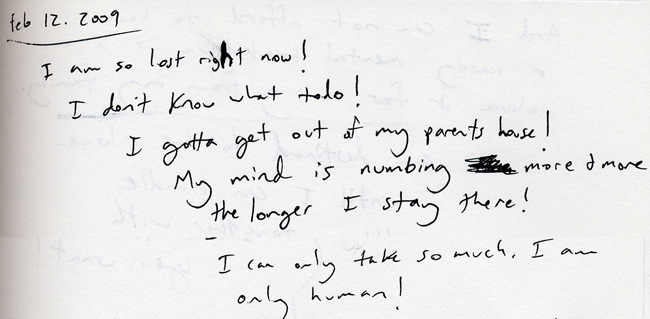 feb 12. 2009
I am so lost right now!
I don't know what todo!
I gotta get out of my parents house!
My mind is numbing more & more
the longer I stay there!
I can only take so much. I am
only human!